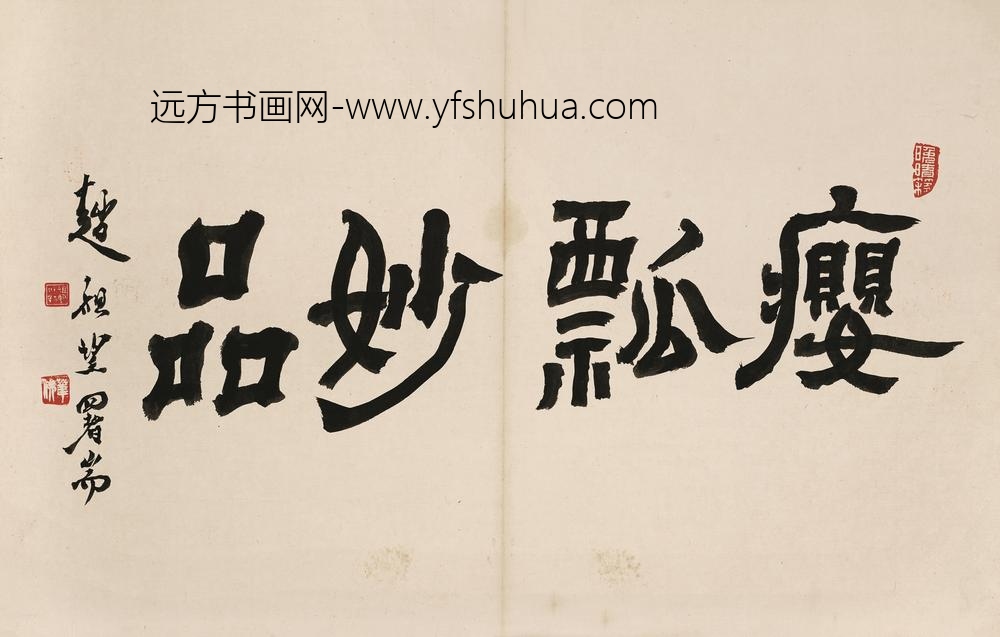 远方书画网-www.yfshuhua.com
癭瓢妙品
趙祖望署耑